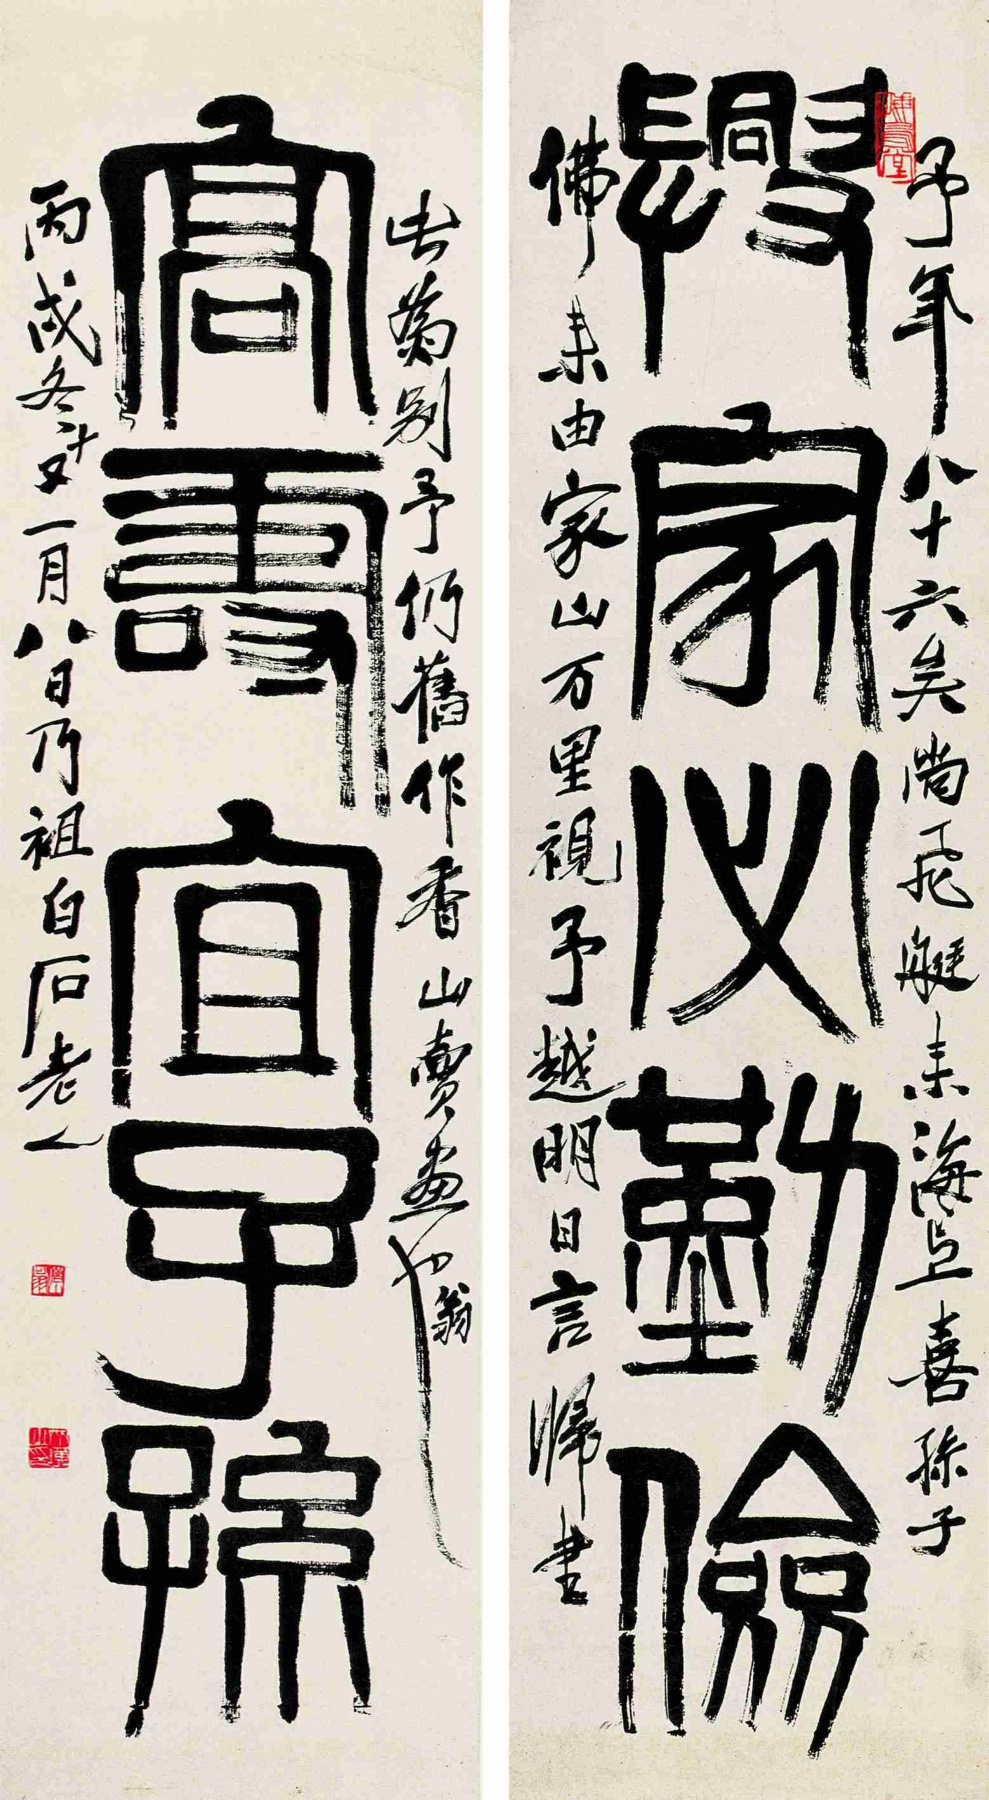 興家必勤儉
高壽宜子孫
予年八十六矣尚飛艇来海上喜孫子
佛来由家山万里視予越明日言歸書
此蒍别予仍舊作香山賣畫翁
丙戌冬十又一月八日乃祖白石老人